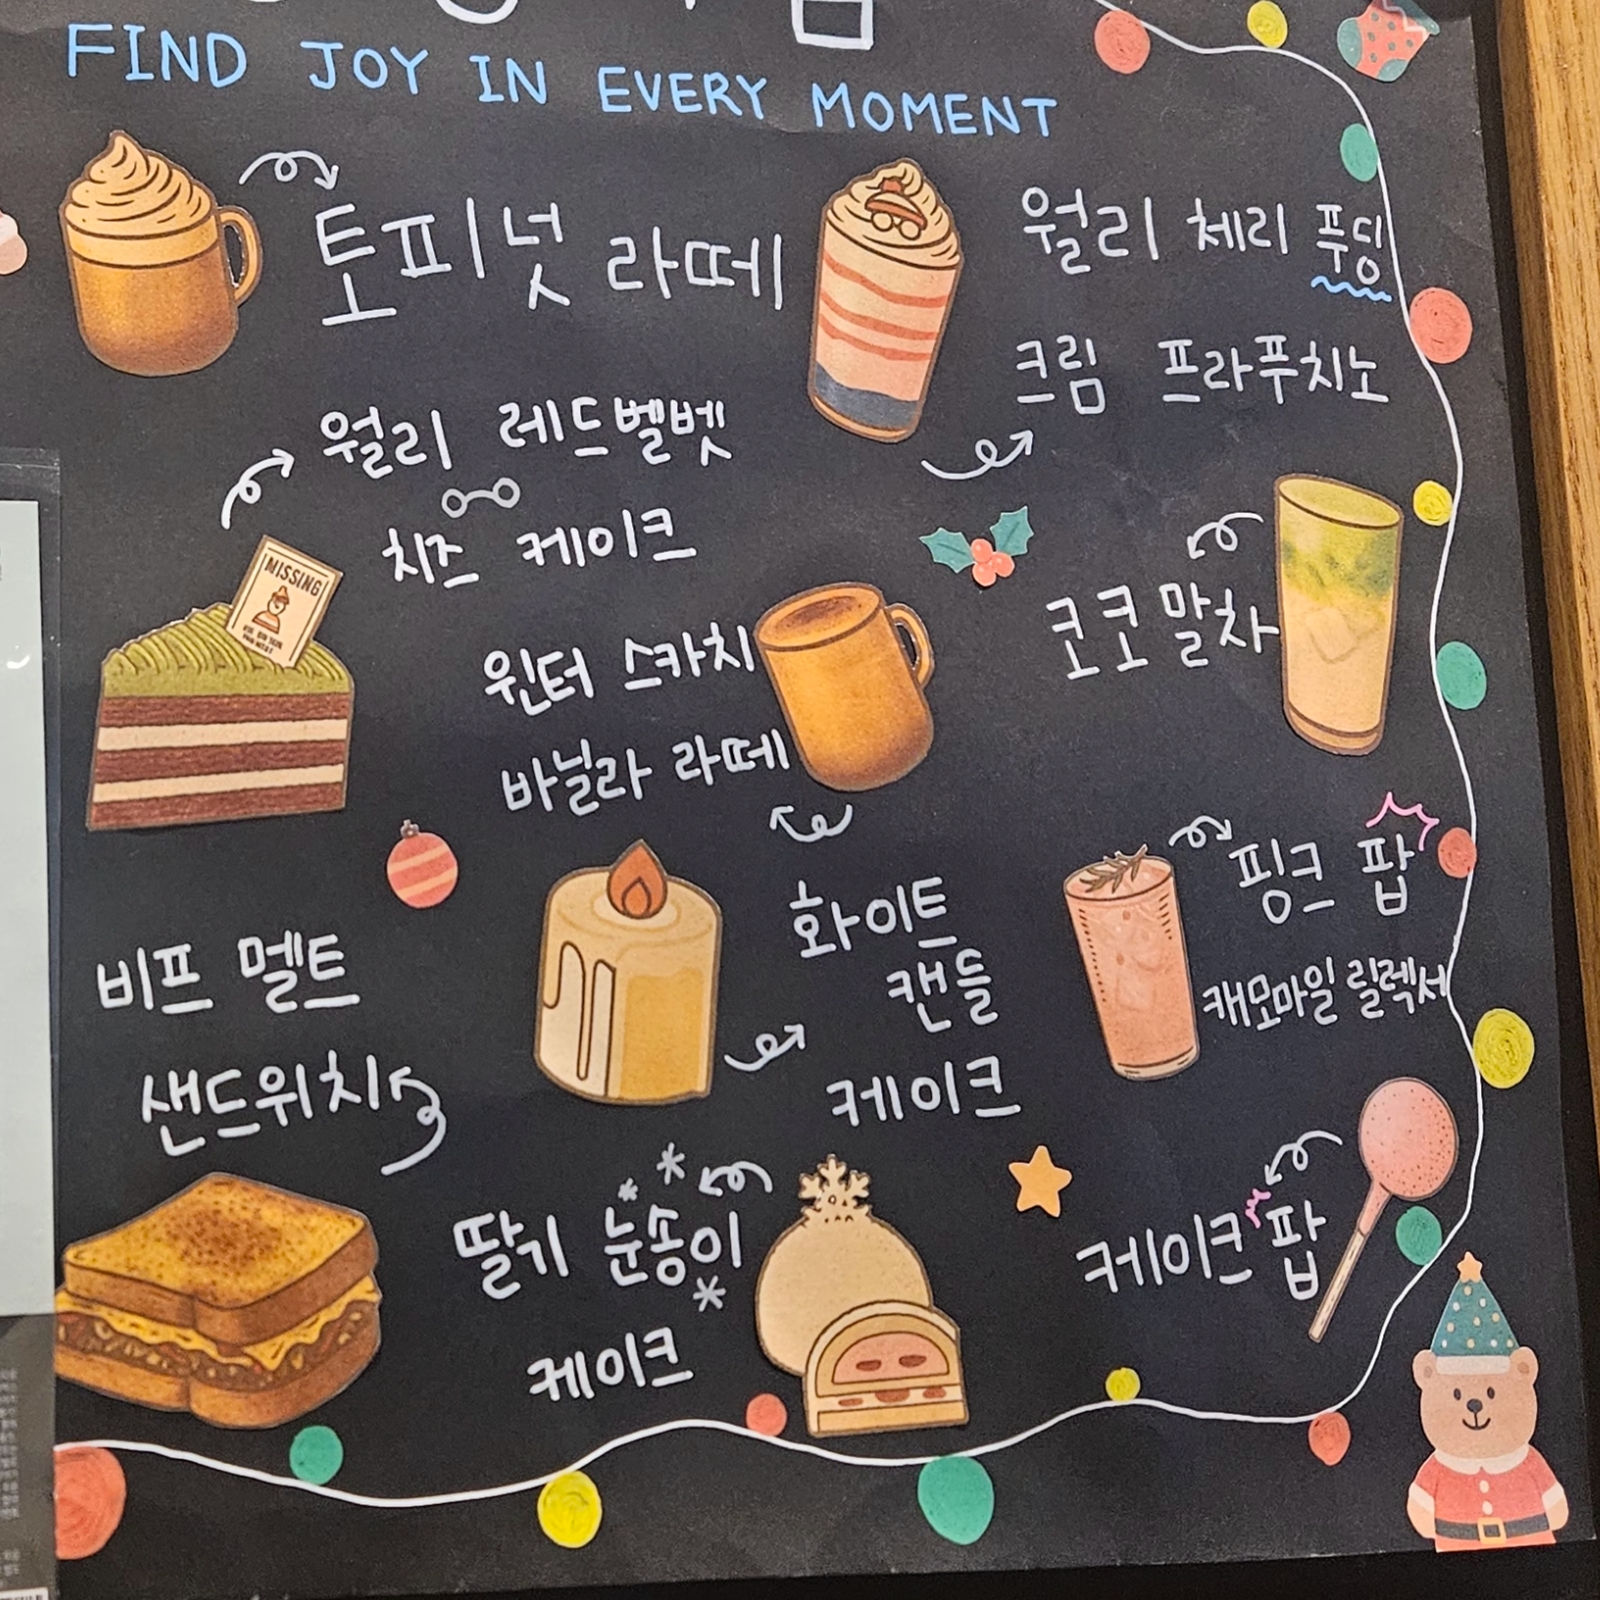 FIND JOY IN EVERY MOMENT
토피넛 라떼
월리 체리 푸딩
크림 프라푸치노
월리 레드벨벳
치즈 케이크
MISSING
코코 말차
윈터 스카치
바닐라 라떼
핑크 팝
캐모마일 릴렉서
화이트
캔들
케이크
비프 멜트
샌드위치
딸기 눈송이
케이크
케이크 팝